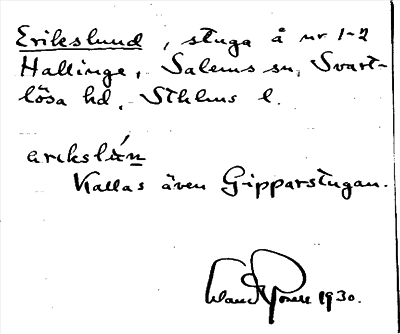 Erikslund, stuga å nr 1-2
Hallinge, Salems sn, Svart-
lösa hd, Sthlms l.
Kallas även Gipparstugan.
1930.